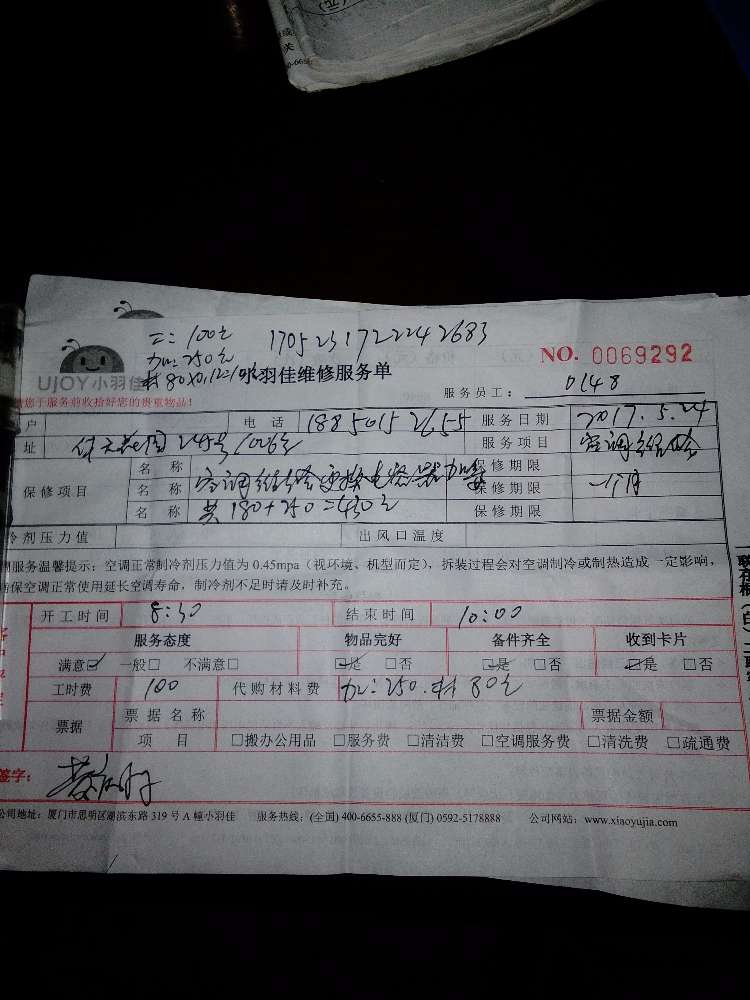 工:100元
1705231722242683
加:250元
NO. 0069292
UJOY小羽佳
材80X0.12=
小羽佳维修服务单
服务员工: 0148
您于服务前收拾好您的贵重物品!
户 电话 18850152655 服务日期 2017.5.24
址 245号1006室 服务项目 空调维修
保修项目 名称 空调维修更换电容器加氟 保修期限
名称 保修期限 一个月
名称 共180+250=430元 保修期限
冷剂压力值 出风口温度
服务温馨提示:空调正常制冷剂压力值为 0.45mpa(视环境、机型而定),拆装过程会对空调制冷或制热造成一定影响,
确保空调正常使用延长空调寿命,制冷剂不足时请及时补充。
开工时间 8:30 结束时间 10:00
服务态度 物品完好 备件齐全 收到卡片
满意☑ 一般□ 不满意□ ☑是 □否 ☑是 □否 ☑是 □否
工时费 100 代购材料费 加:250.材80元
票据 票据名称 票据金额
项目 □搬办公用品 □服务费 □清洁费 □空调服务费 □清洗费 □疏通费
签字:
公司地址:厦门市思明区湖滨东路 319 号 A 幢小羽佳 服务热线:(全国) 400-6655-888 (厦门) 0592-5178888 公司网站:www.xiaoyujia.com